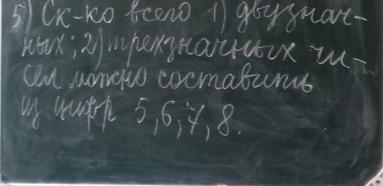 5) Ск-ко всего 1) двузнач-
ных; 2) трехзначных чи-
сел можно составить
из цифр 5, 6, 7, 8.